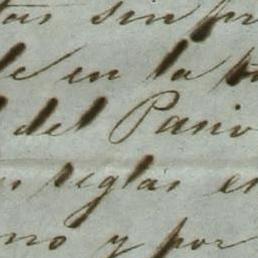 tas sin pr
le en la
del Pario
s reglas en
no y por